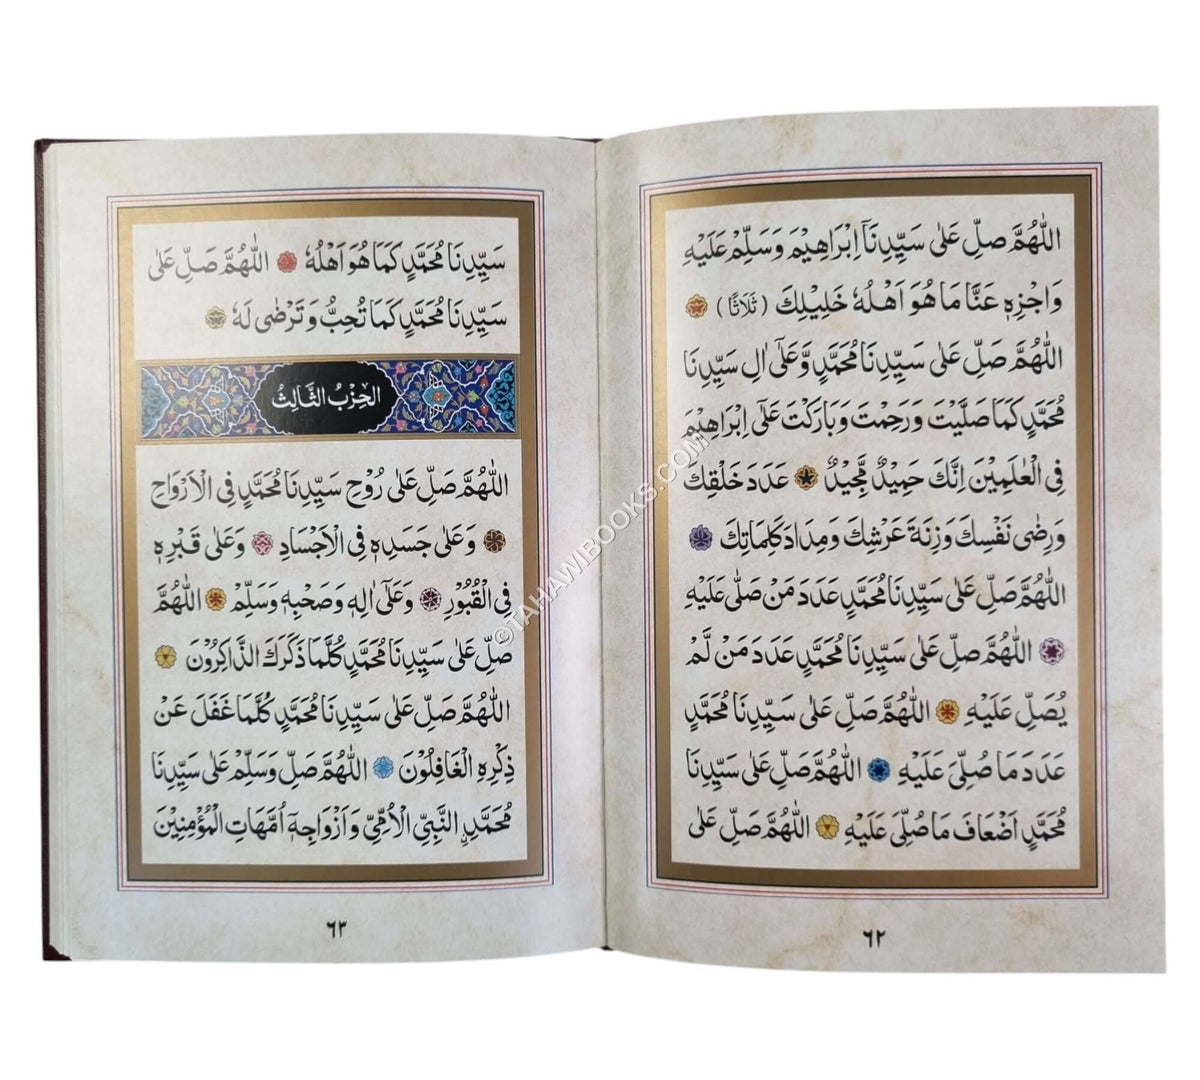 اَللّٰهُمَّ صَلِّ عَلٰى سَيِّدِنَٓا اِبْرَاهِيْمَ وَسَلِّمْ عَلَيْهِ
وَاجْزِهٖ عَنَّا مَا هُوَ اَهْلُهُ خَلِيْلِكَ (ثَلَاثًا)
اَللّٰهُمَّ صَلِّ عَلٰى سَيِّدِنَا مُحَمَّدٍ وَّعَلٰٓى اٰلِ سَيِّدِنَا
مُحَمَّدٍ كَمَا صَلَّيْتَ وَرَحِمْتَ وَبَارَكْتَ عَلٰٓى اِبْرَاهِيْمَ
فِى الْعٰلَمِيْنَ اِنَّكَ حَمِيْدٌ مَّجِيْدٌ عَدَدَ خَلْقِكَ
وَرِضٰى نَفْسِكَ وَزِنَةَ عَرْشِكَ وَمِدَادَ كَلِمَاتِكَ
اَللّٰهُمَّ صَلِّ عَلٰى سَيِّدِنَا مُحَمَّدٍ عَدَدَ مَنْ صَلّٰى عَلَيْهِ
اَللّٰهُمَّ صَلِّ عَلٰى سَيِّدِنَا مُحَمَّدٍ عَدَدَ مَنْ لَّمْ
يُصَلِّ عَلَيْهِ اَللّٰهُمَّ صَلِّ عَلٰى سَيِّدِنَا مُحَمَّدٍ
عَدَدَ مَا صُلِّىَ عَلَيْهِ اَللّٰهُمَّ صَلِّ عَلٰى سَيِّدِنَا
مُحَمَّدٍ اَضْعَافَ مَا صُلِّىَ عَلَيْهِ اَللّٰهُمَّ صَلِّ عَلٰى
٦٢
سَيِّدِنَا مُحَمَّدٍ كَمَا هُوَ اَهْلُهٗ اَللّٰهُمَّ صَلِّ عَلٰى
سَيِّدِنَا مُحَمَّدٍ كَمَا تُحِبُّ وَتَرْضٰى لَهٗ
اَلْحِزْبُ الثَّالِثُ
اَللّٰهُمَّ صَلِّ عَلٰى رُوْحِ سَيِّدِنَا مُحَمَّدٍ فِى الْاَرْوَاحِ
وَعَلٰى جَسَدِهٖ فِى الْاَجْسَادِ وَعَلٰى قَبْرِهٖ
فِى الْقُبُوْرِ وَعَلٰٓى اٰلِهٖ وَصَحْبِهٖ وَسَلِّمْ اَللّٰهُمَّ
صَلِّ عَلٰى سَيِّدِنَا مُحَمَّدٍ كُلَّمَا ذَكَرَكَ الذَّاكِرُوْنَ
اَللّٰهُمَّ صَلِّ عَلٰى سَيِّدِنَا مُحَمَّدٍ كُلَّمَا غَفَلَ عَنْ
ذِكْرِهِ الْغَافِلُوْنَ اَللّٰهُمَّ صَلِّ وَسَلِّمْ عَلٰى سَيِّدِنَا
مُحَمَّدِ ۨالنَّبِيِّ الْاُمِّيِّ وَاَزْوَاجِهٖٓ اُمَّهَاتِ الْمُؤْمِنِيْنَ
٦٣
©TAHAWIBOOKS.COM